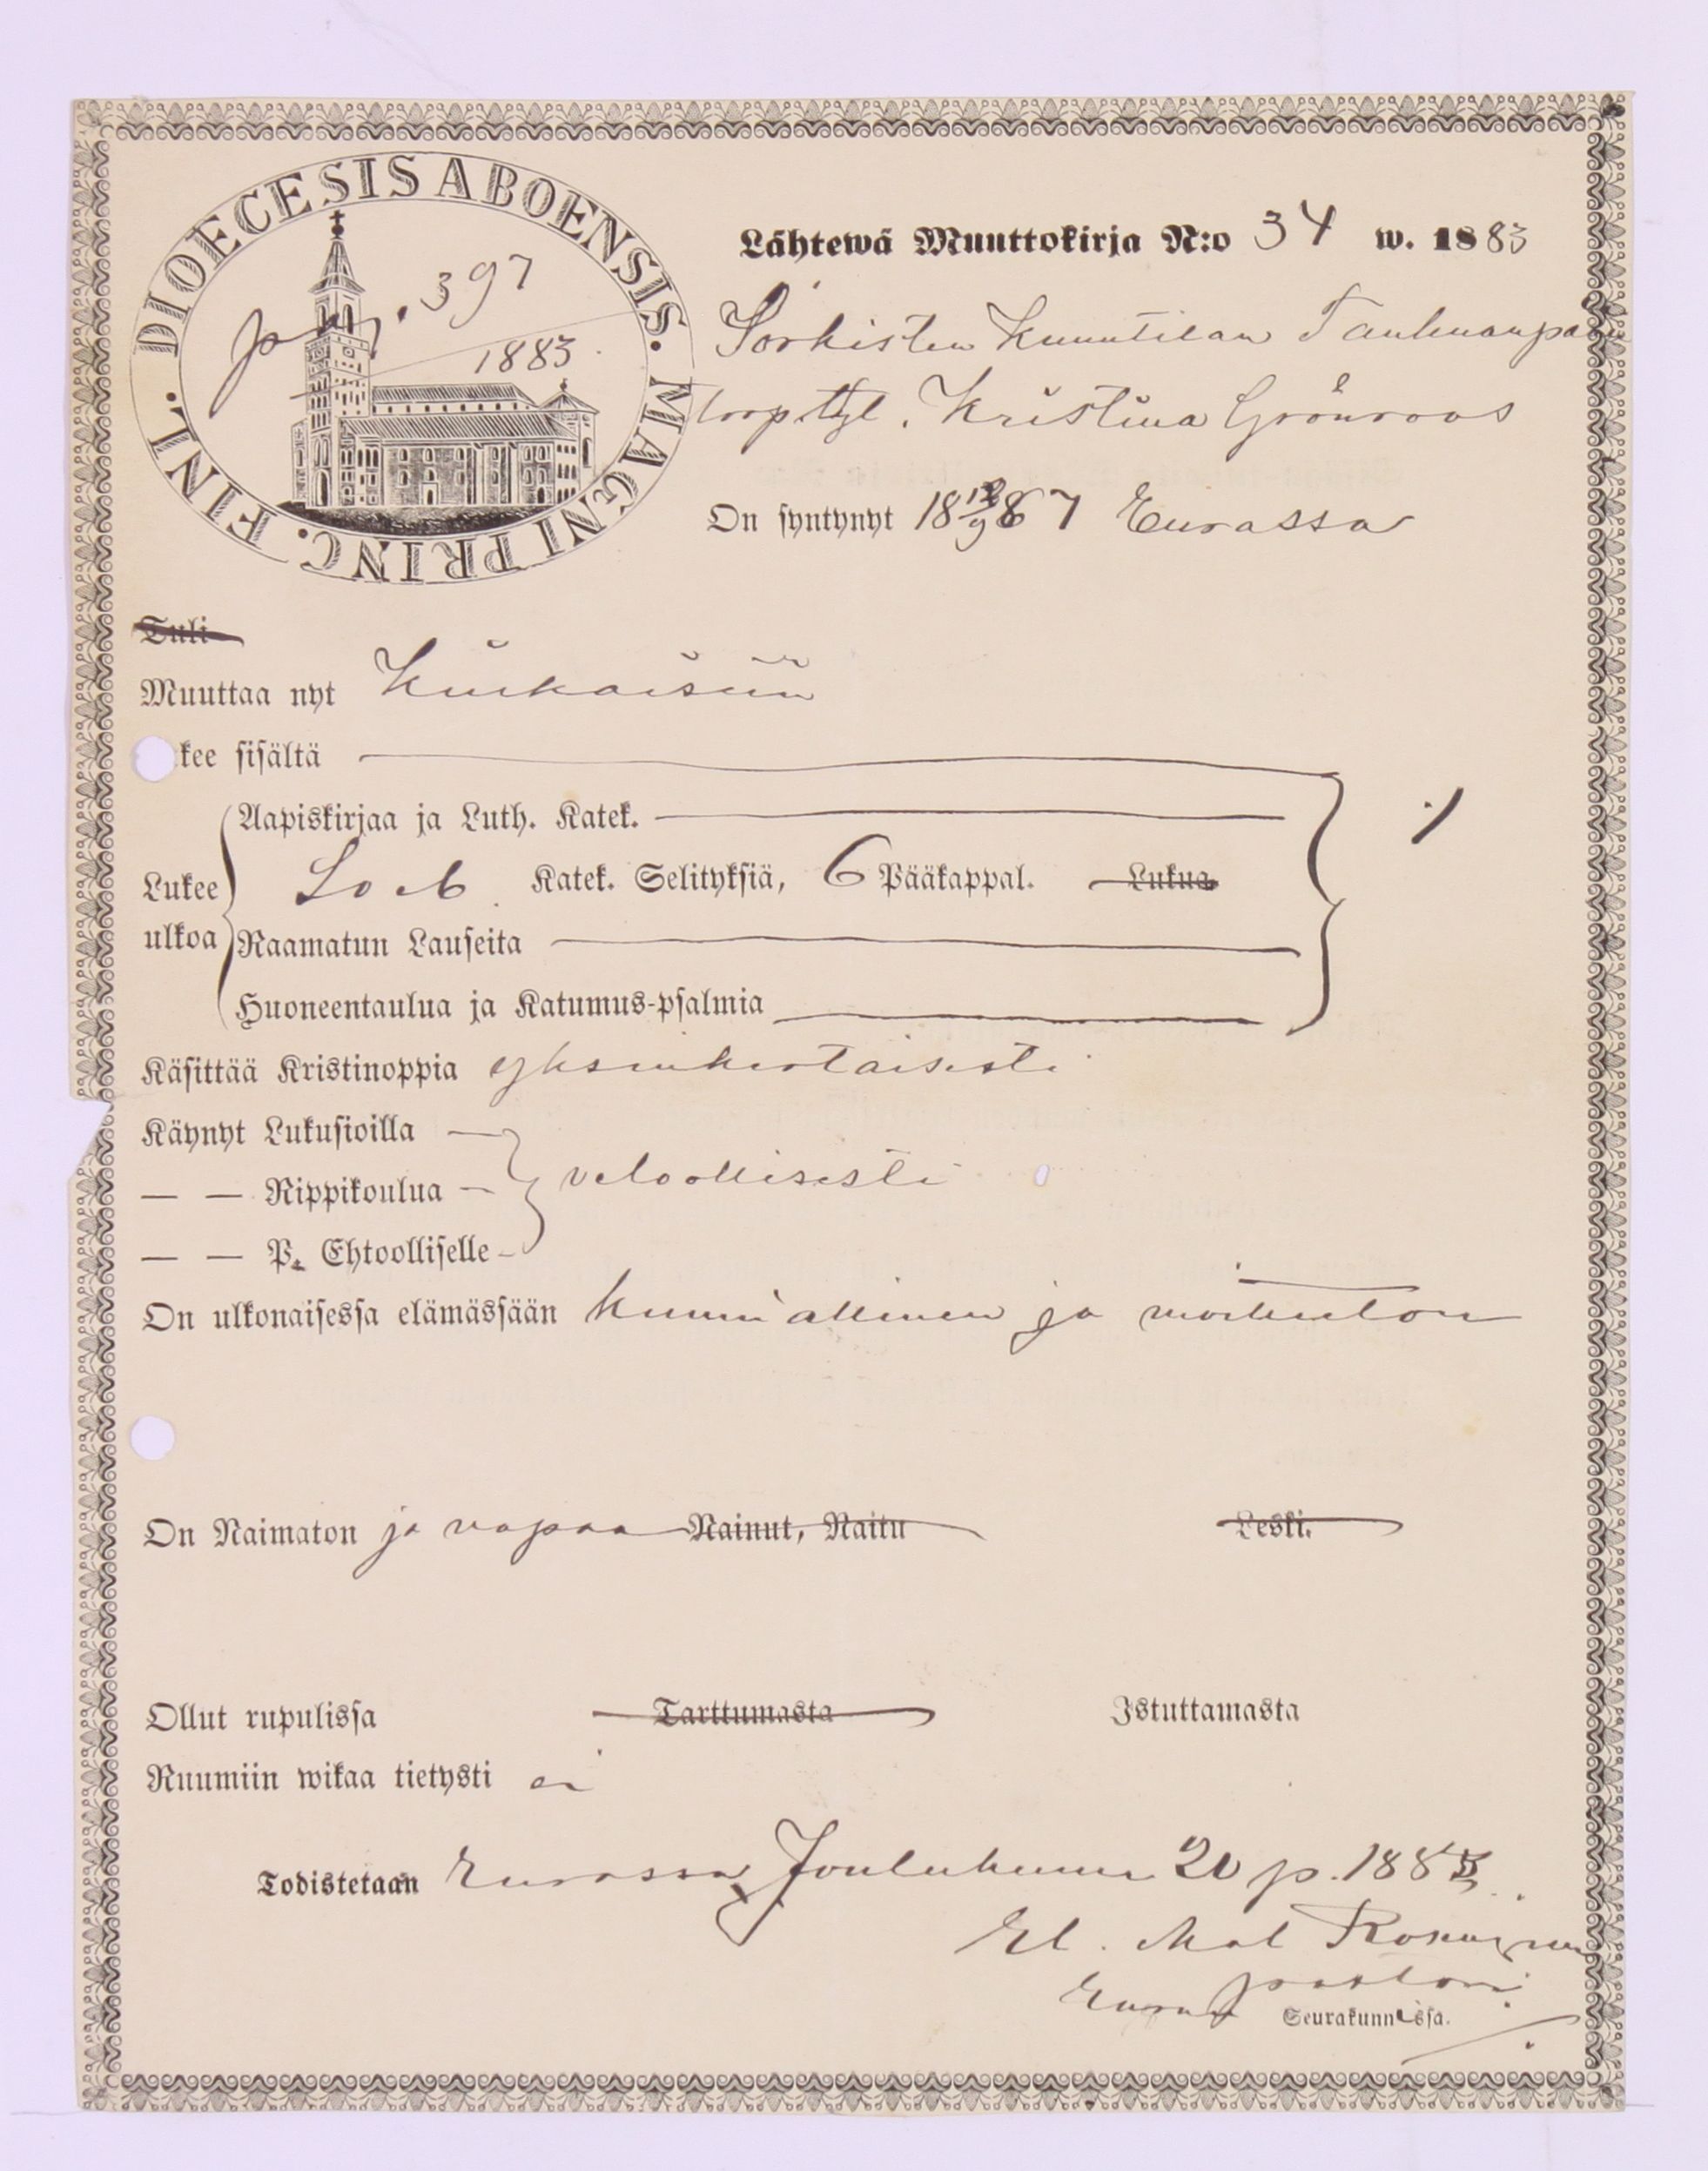 DIOECESIS ABOENSIS. MAGNI PRINC. FINL.
pag. 397
1883
Lähtewä Muuttokirja N:o 34 w. 1883
Sorkisten Kuuntilan
torp. ttyt. Kristina Grönroos
On syntynyt 18 12/9 67 Eurassa
Tuli
Muuttaa nyt Kiukaisiin
kee sisältä
Aapiskirjaa ja Luth. Katek.
Lukee Katek. Selityksiä, 6 Pääkappal. Lukua
ulkoa Raamatun Lauseita
Huoneentaulua ja Katumus-psalmia
Käsittää Kristinoppia yksinkertaisesti
Käynyt Lukusioilla
— — Rippikoulua velvollisesti
— — P. Ehtoolliselle
On ulkonaisessa elämässään kunniallinen ja moitteeton
On Naimaton ja vapaa Nainut, Naitu Leski.
Ollut rupulissa Tarttumasta Istuttamasta
Ruumiin wikaa tietysti ei
Todistetaan Eurassa Joulukuun 20 p. 1883
pastori
Euran Seurakunnassa.